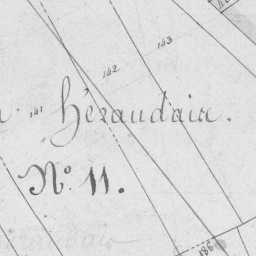 143
142
141 héraudair.
N.º 11.
198